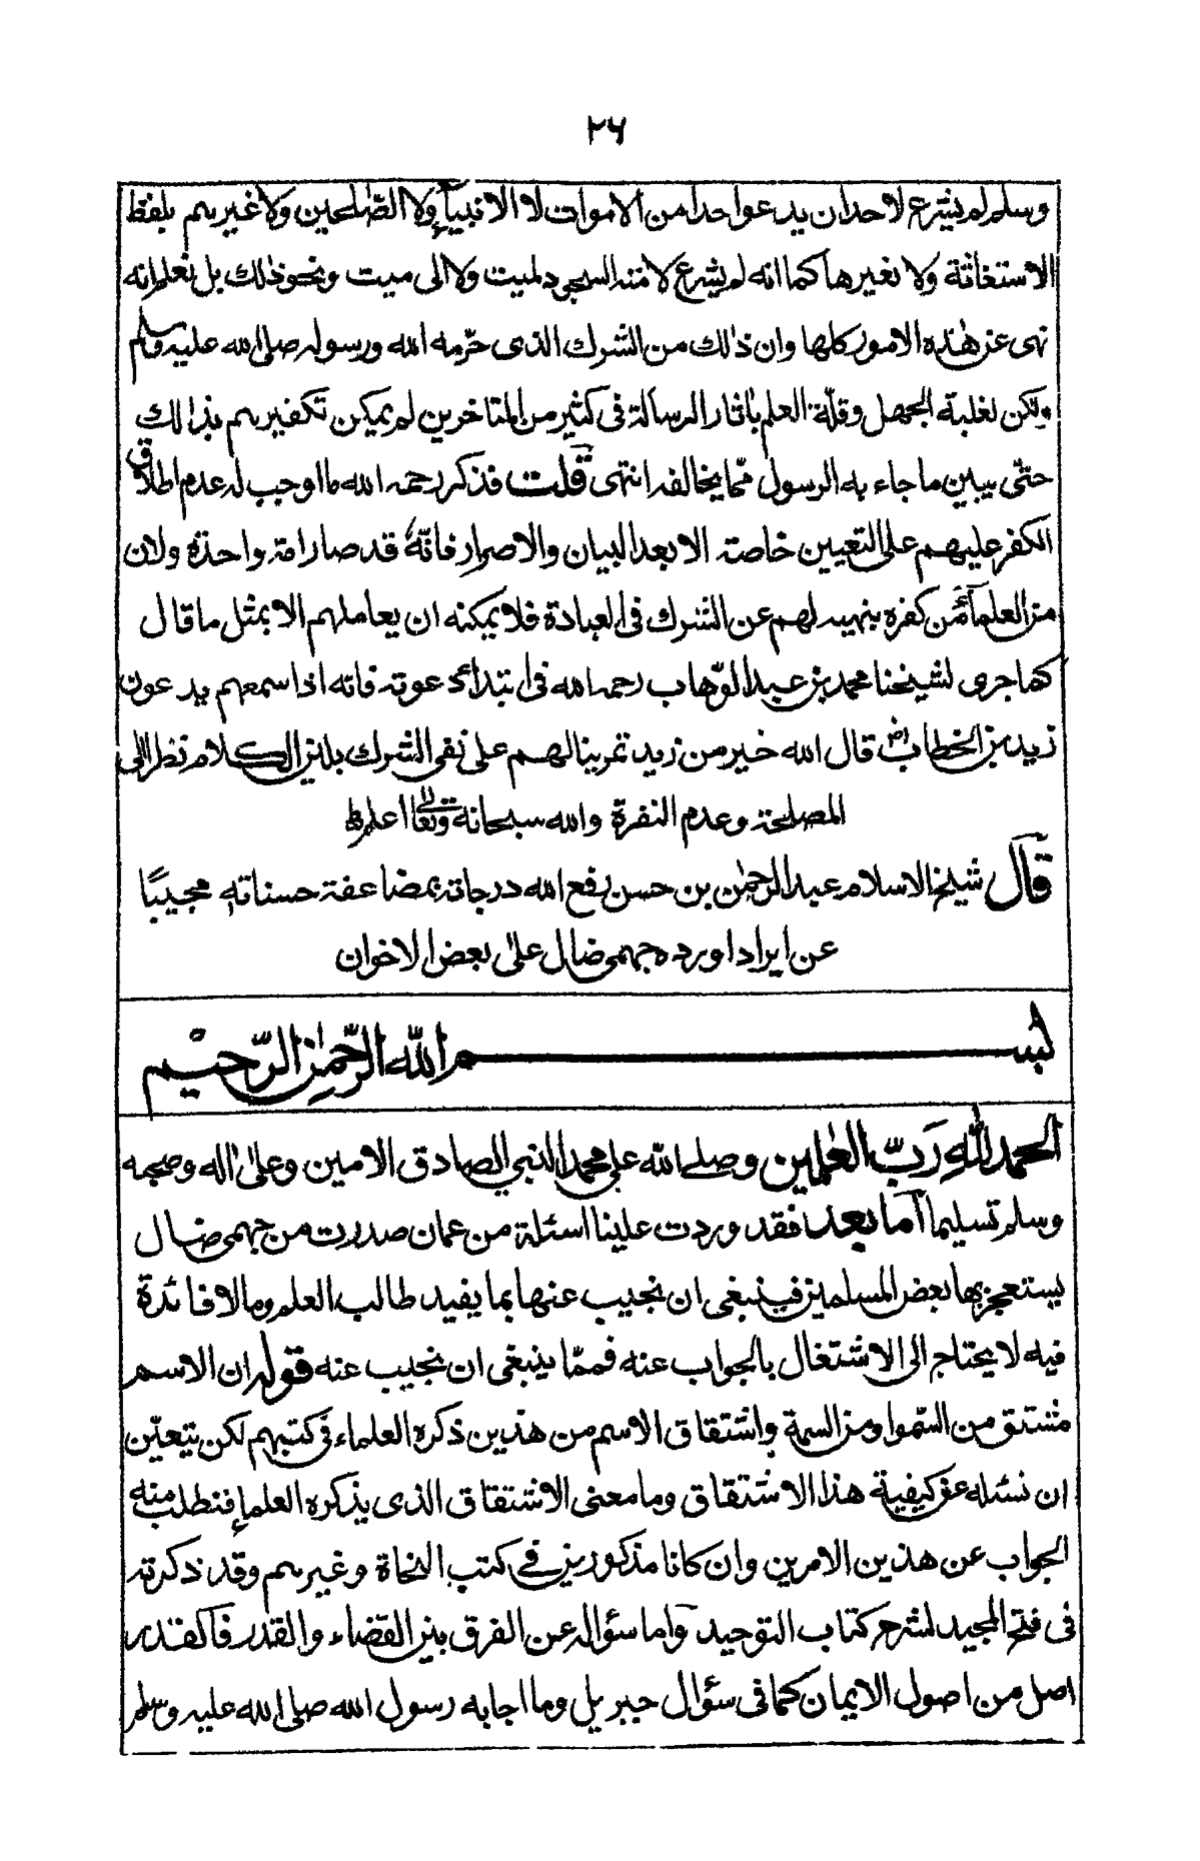 ٢٦
وسلم لم يشرع لاحد ان يدعوا احدا من الاموات لا الانبياء ولا الصّلحين ولا غيرهم بلفظ
الاستغاثة ولا بغيرها كما انه لم يشرع لامته السجود لميت ولا الى ميت ونحو ذلك بل نعلم انه
نهى عن هٰذه الامور كلها وان ذٰلك من الشرك الذى حرّمه الله ورسوله صلى الله عليه وسلم
ولكن لغلبة الجهل وقلّة العلم باٰثار الرسالة فى كثير من المتاخرين لم يمكن تكفيرهم بذالك
حتّى يبين ما جاء به الرسول ممّا يخالفه انتهى قلت فذكر رحمه الله ما اوجب له عدم اطلاق
الكفر عليهم على التعيين خاصة الا بعد البيان والاصرار فانّهٗ قد صار امة واحدة ولان
من العلمآء من كفره بنهيه لهم عن الشرك فى العبادة فلا يمكنه ان يعاملهم الا بمثل ما قال
كما جرى لشيخنا محمد بن عبد الوهاب رحمه الله فى ابتداء دعوته فانه اذا سمعهم يدعون
زيد بن الخطاب رض قال الله خير من زيد تمرينا لهم على نفى الشرك بلين الكلام نظرا الى
المصلحة وعدم النفرة والله سبحانه وتعالى اعلم
قال شيخ الاسلام عبد الرحمٰن بن حسن رفع الله درجاته بمضاعفة حسناته مجيبًا
عن ايراد اورده جهمى ضال على بعض الاخوان
بسم الله الرّحمٰن الرّحيم
الحمد للّٰهِ رَبّ العٰلمين وصلى الله على محمد النبي الصادق الامين وعلىٰ اٰله وصحبه
وسلم تسليما اما بعد فقد وردت علينا اسئلة من عمان صدرت من جهمى ضال
يستعجز بها بعض المسلمين فينبغى ان نجيب عنها بما يفيد طالب العلم وما لا فائدة
فيه لا يحتاج الى الاشتغال بالجواب عنه فممّا ينبغى ان نجيب عنه قوله ان الاسم
مشتق من السّمو او من السمة واشتقاق الاسم من هذين ذكره العلماء فى كتبهم لكن يتعيّن
ان نسئله عن كيفية هذا الاشتقاق وما معنى الاشتقاق الذى يذكره العلماء فنطلب منه
الجواب عن هذين الامرين وان كانا مذكورين فى كتب النحاة وغيرهم وقد ذكرته
فى فتح المجيد لشرح كتاب التوحيد واما سؤاله عن الفرق بين القضاء والقدر فالقدر
اصل من اصول الايمان كما فى سؤال جبريل وما اجابه رسول الله صلى الله عليه وسلم